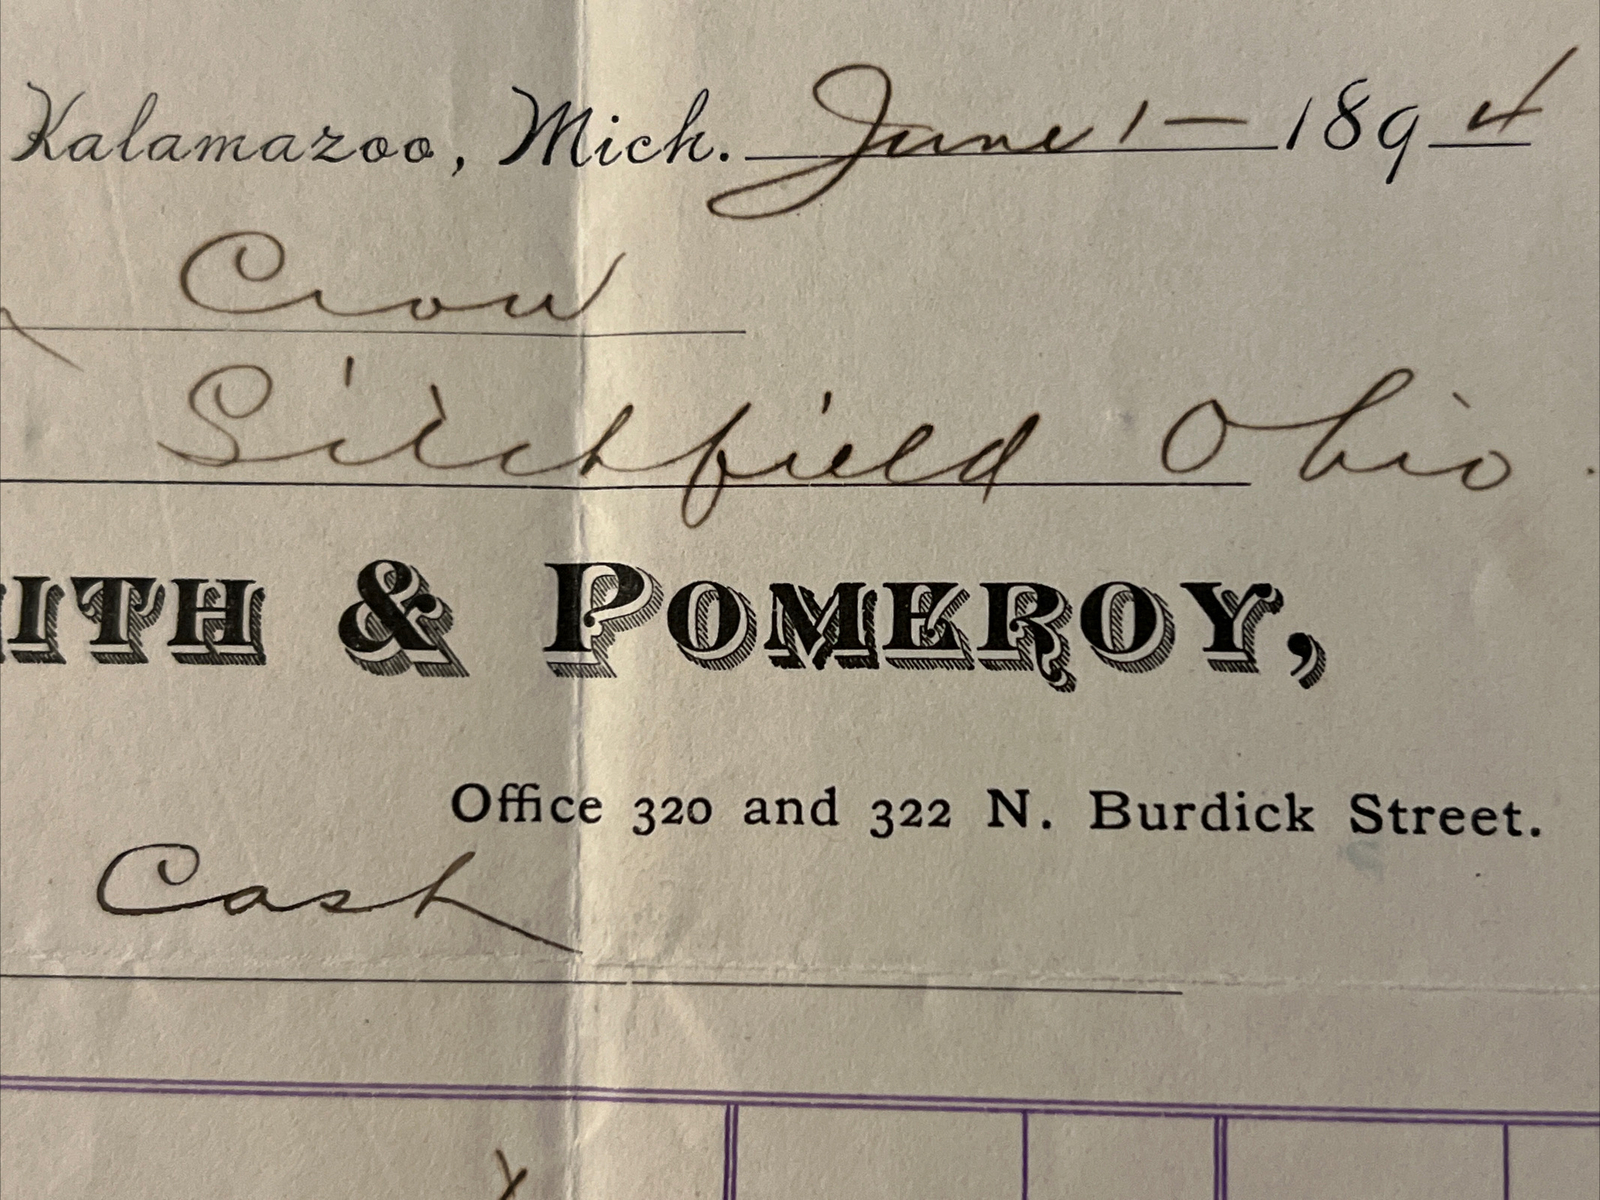 Kalamazoo, Mich. June 1 — 1894
Crow
Litchfield Ohio.
ITH & POMEROY,
Office 320 and 322 N. Burdick Street.
Cash